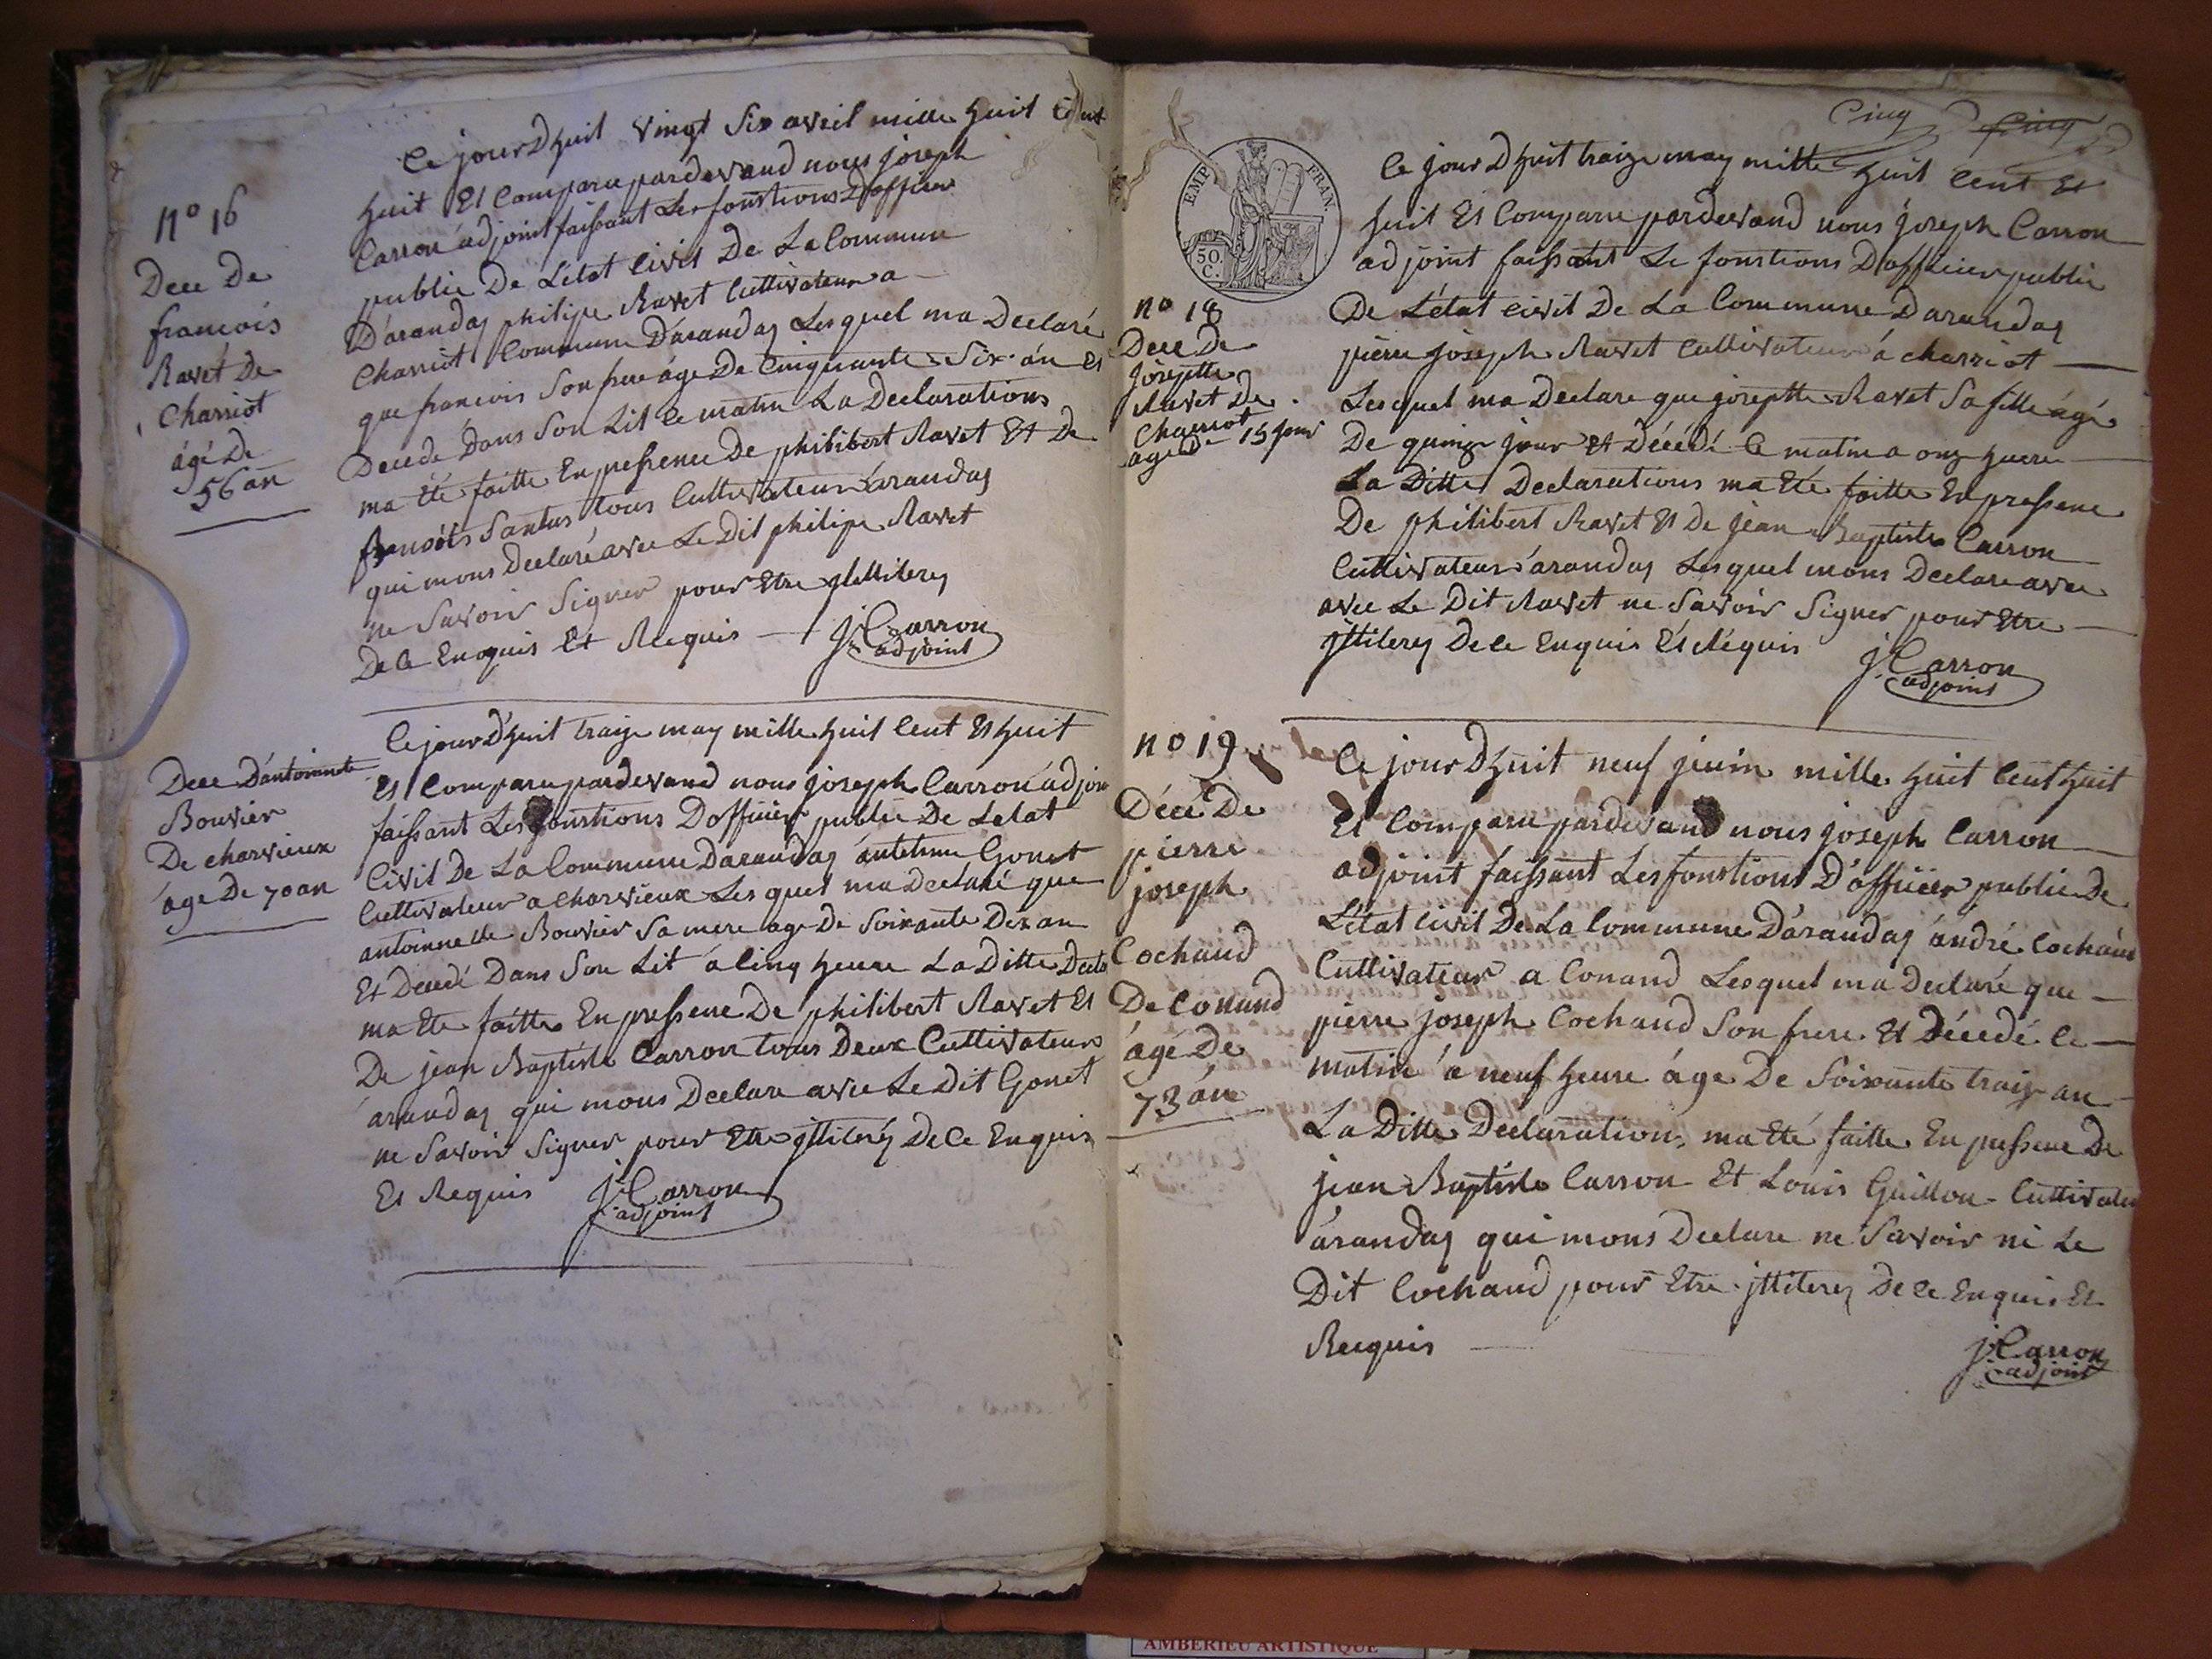 nº 16
Dece De
francois
Ravet De
Charriot
âgé De
56 an
Ce jourDhuit vingt Six avril mille huit Cent
huit Et Comparu pardevand nous joseph
Carron adjoint faissant Les fonstions Dofficier
public De L'état Civil De La Commune
D'arandas philipe Ravet Cultivateur a
Charriot Commune D'arandas Lesquel ma Declaré
que francois Son frere âge De Cinquante Six an Et
Decede Dans Son Lit Ce matin La Declarations
ma Eté faitte En pressence De philibert Ravet Et De
francois Santus tous Cultivateur árandas
qui mons Declaré avec Le Dit philipe Ravet
ne Savoir Signer pour Etre jlliterez
De Ce Enquis Et Requis J. Carron
adjoint
Dece D'antoinnette
Bouvier
De charvieux
âge De 70 an
Ce jourD'huit traize may mille huit Cent Et huit
Et Comparu pardevand nous joseph Carron adjoin
faissant Les fonstions Dofficier public De Letat
Civil De La Commune Darandas Gonet
Cultivateur a charvieux Lesquel ma Declaré que
antoinnette Bouvier Sa mere age De Soixante Dix an
Et Decedé Dans Son Lit á Cinq heure La Ditte Decla
ma Ete faitte En pressence De philibert Ravet Et
De jean Baptiste Carron tous Deux Cultivateurs
arandas qui mons Declare avec Le Dit Gonet
ne Savoir Signer pour Etre jlliterez De Ce Enquis
Et Requis J. Carron
adjoint
Cinq Cinq
EMP. FRAN.
50 C.
nº 18
Dece De
Josephtte
Ravet De
Charriot
age De 15 jour
Ce jour Dhuit traize may mille huit Cent Et
huit Et Comparu pardevand nous joseph Carron
adjoint faissant Le fonstions D'officier public
De L'état Civil De La Commune Darandas
pierre joseph Ravet Cultivateur á charriot
Lesquel ma Declare que josephtte Ravet Sa fille âgé
De quinze jour Et Décédé Ce matin a onze heure
La Ditte Declarations ma Eté faitte En pressence
De philibert Ravet Et De jean Baptiste Carron
Cultivateur árandas Lesquel mons Declare avec
avec Le Dit Ravet ne Savoir Signer pour Etre
jlliterez De Ce Enquis Et Réquis
J. Carron
adjoint
nº 19
Décé De
pierre
joseph
Cochaud
De Conand
âgé De
73 an
Ce jourDhuit neuf juin mille huit Cent huit
Et Comparu pardevand nous joseph Carron
adjoint faissant Les fonstions D'officier public De
L'état Civil De La Commune D'arandas andré Cochaud
Cultivateur a Conand Lesquel ma Declaré que
pierre joseph Cochaud Son frere Et Décedé Ce
matin á neuf heure âge De Soixante traize an
La Ditte Déclaration ma Eté faitte En pressence De
jean Baptiste Carron Et Louis Guillon Cultivateu
árandas qui mons Declare ne Savoir ni Le
Dit Cochaud pour Etre jlliterez De Ce Enquis Et
Requis
J. Carron
adjoint
AMBÉRIEU ARTISTIQUE